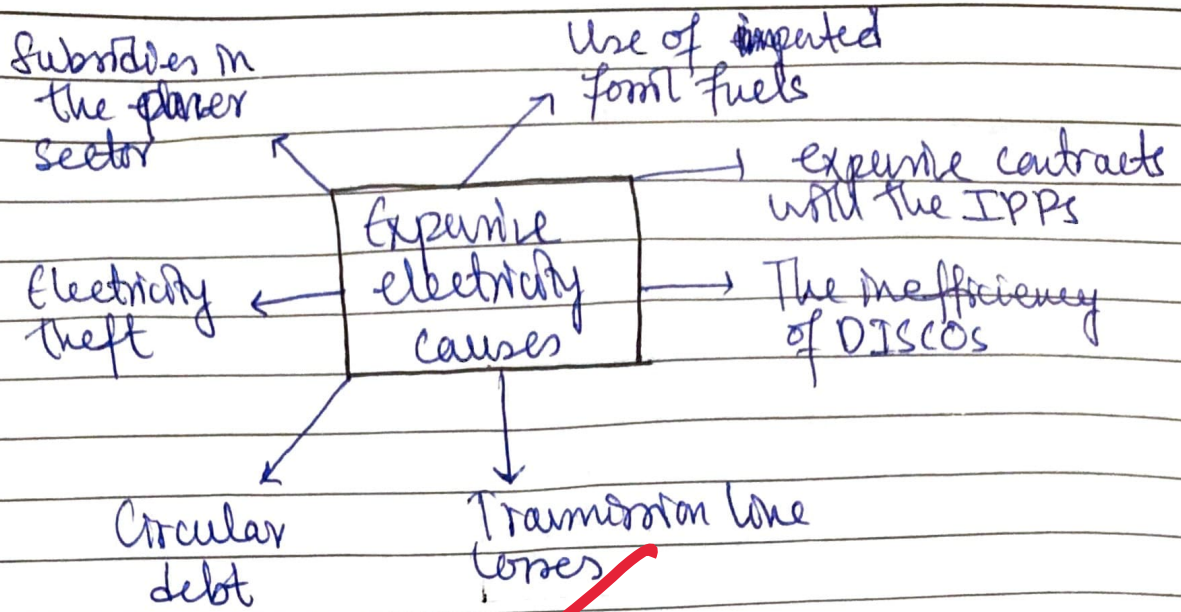 Subsidies in
the power
sector
Use of imported
fossil fuels
expensive contracts
with the IPPs
Expensive
electricity
causes
Electricity
theft
The inefficiency
of DISCOs
Circular
debt
Transmission line
losses